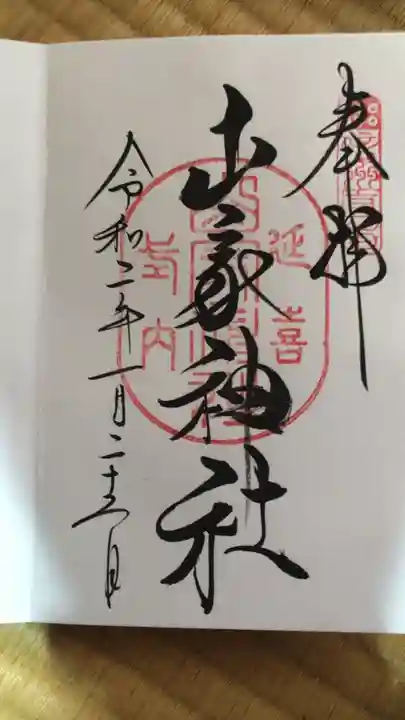 奉拝
延喜
山家神社
式内
令和二年一月二十六日